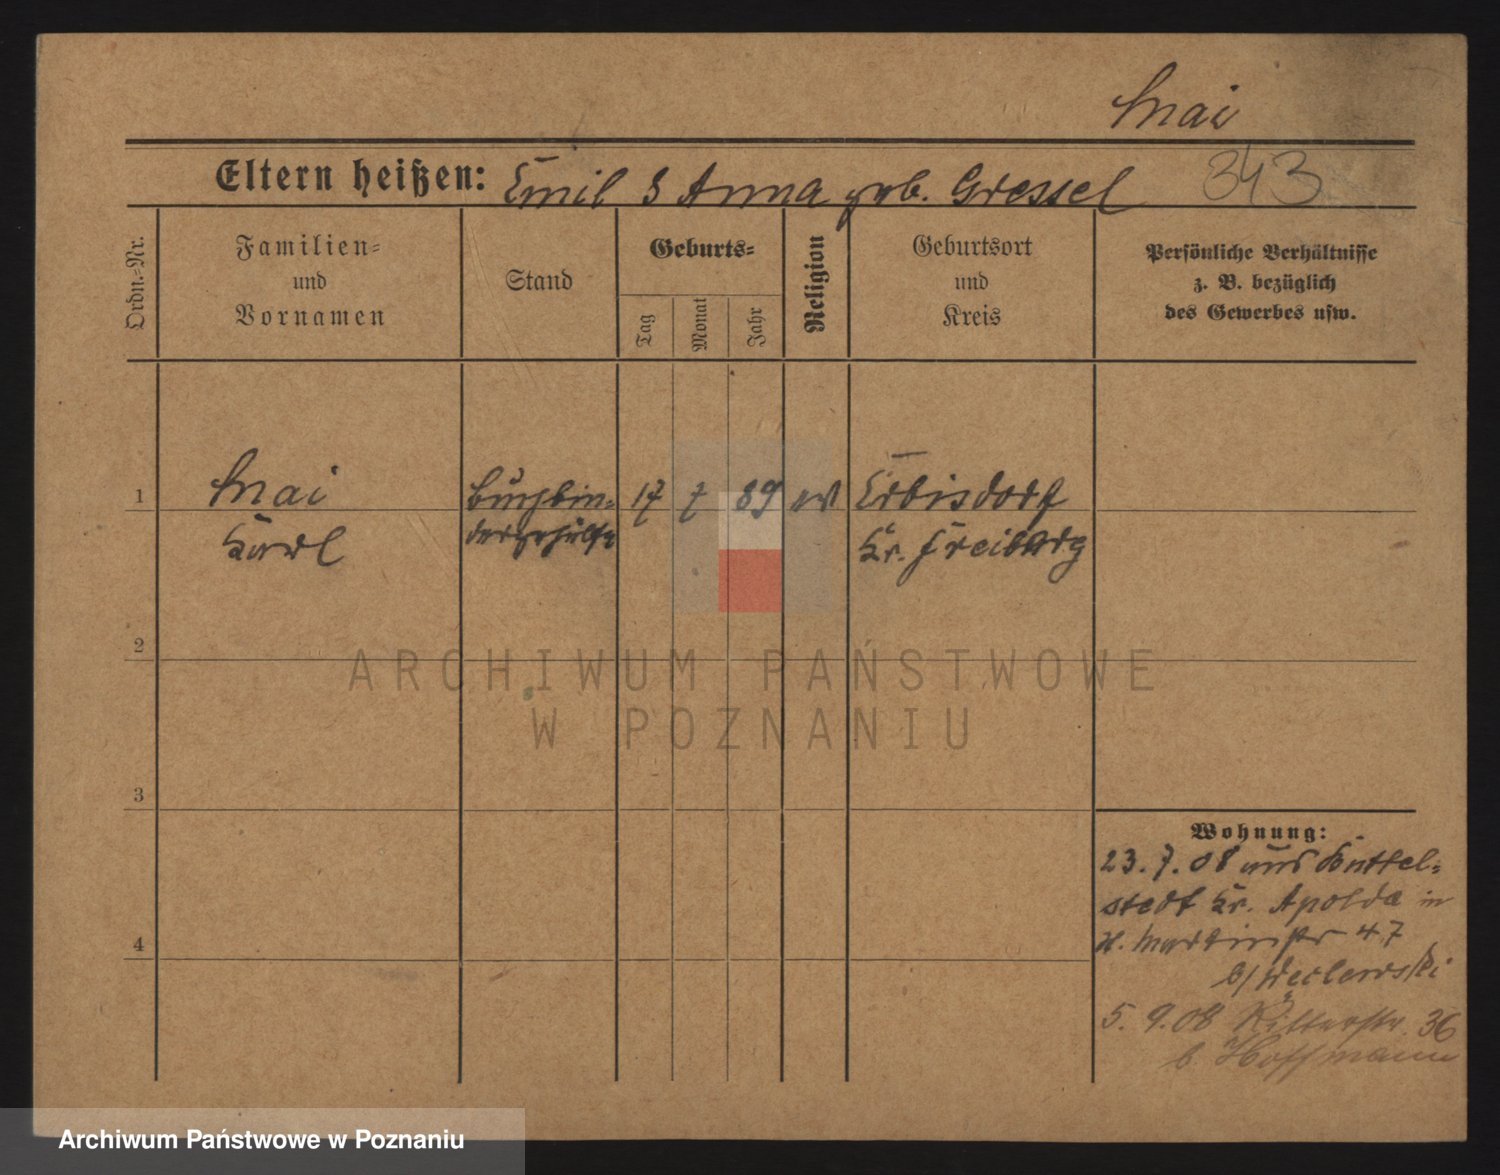 Mai
343
Eltern heißen: Emil & Anna geb. Gressel
Ordn.=Nr.
Familien=
und
Vornamen
Stand
Geburts=
Tag
Monat
Jahr
Religion
Geburtsort
und
Kreis
Persönliche Verhältnisse
z. B. bezüglich
des Gewerbes usw.
1
Mai
Karl
Buchbin=
dergehülfe
17
7
89
ev
Erbisdorf
Kr. Freiberg
2
3
4
Wohnung:
23.7.08 aus Buttel=
stedt Kr. Apolda in
St. Martinstr 47
b/ Weclewski
5.9.08 Ritterstr. 36
b. Hoffmann
ARCHIWUM PAŃSTWOWE
W POZNANIU
Archiwum Państwowe w Poznaniu